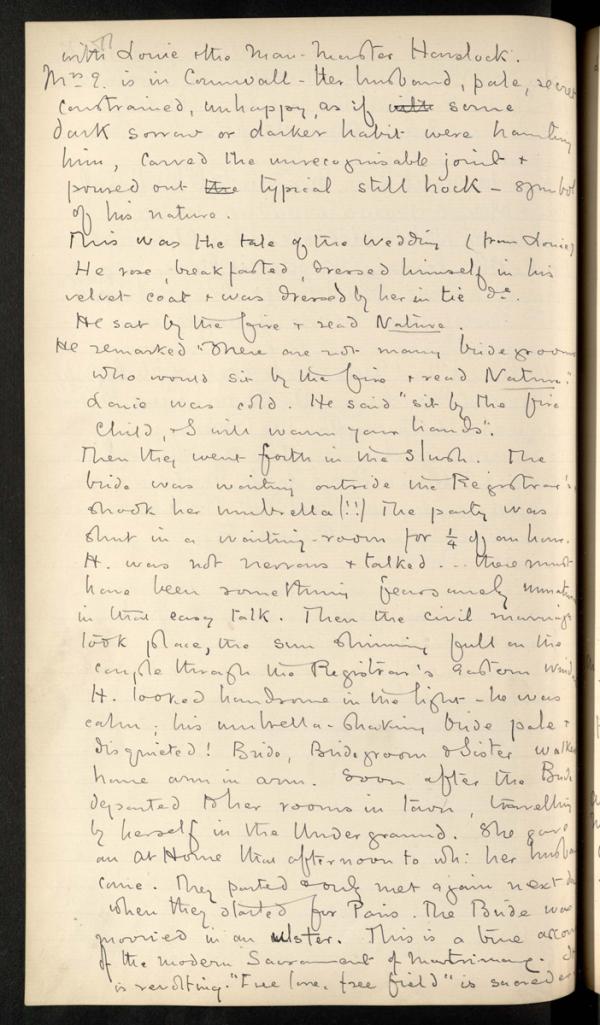 with Louie & the Man-Master Havelock.
Mrs E. is in Cornwall - Her husband, pale, secret
constrained, unhappy, as if with some
dark sorrow or darker habit were haunting
him, carved the unrecognisable joint &
poured out the typical still hock - symbol
of his nature.
This was the tale of the wedding (from Louie)
He rose, breakfasted, dressed himself in his
velvet coat & was dressed by her in tie &c.
He sat by the fire & read Nature.
He remarked "There are not many bridegrooms
who would sit by the fire & read Nature."
Louie was cold. He said "sit by the fire
child, & I will warm your hands".
Then they went forth in the slush. The
bride was waiting outside the Registrar's,
shook her umbrella (!!) The party was
shut in a waiting-room for ¼ of an hour.
H. was not nervous & talked ... there must
have been something fearsomely unnatural
in that easy talk. Then the civil marriage
took place, the sun shining full on the
couple through the Registrar's Eastern window
H. looked handsome in the light - he was
calm; his umbrella-shaking bride pale &
disquieted! Bride, Bridegroom & Sister walked
home arm in arm. Soon after the Bride
departed to her rooms in town, travelling
by herself in the Underground. She gave
an At Home that afternoon to wh: her husband
came. They parted & only met again next day
when they started for Paris. The Bride was
married in an ulster. This is a true account
of the modern Sacrament of Matrimony. It
is revolting. "Free love, free field" is sacreder